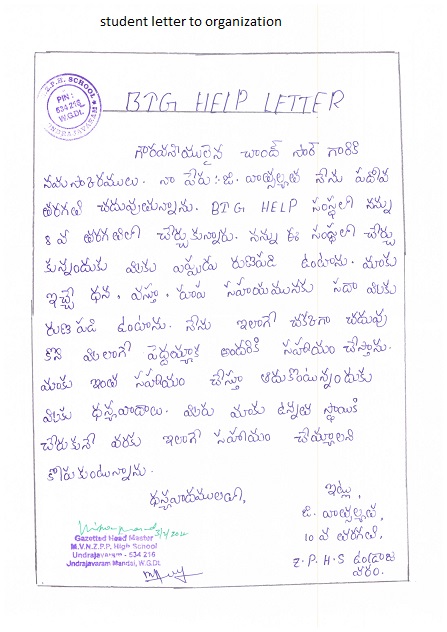 student letter to organization
Z.P.H. SCHOOL
PIN:
534 216
W.G.DL
UNDRAJAVARAM
BTG HELP LETTER
గౌరవనీయులైన చాంద్ సార్ గారికి
నమస్కారములు. నా పేరు:- జి. వాత్సల్య నేను పదోవ
తరగతి చదువుతున్నాను. BTG HELP సంస్థలో నన్ను
8 వ తరగతిలో చేర్చుకున్నారు. నన్ను ఈ సంస్థలో చేర్చు
కున్నందుకు మీకు ఎప్పుడు రుణపడి ఉంటాను. మాకు
ఇచ్చే ధన, వస్తు, రూప సహాయమునకు సదా మీకు
రుణ పడి ఉంటాను. నేను ఇలాగే చక్కగా చదువు
కొని మీలాగే పెద్దయ్యాక అందరికి సహాయం చేస్తాను.
మాకు ఇంత సహాయం చేస్తూ ఆదుకొంటున్నందుకు
మీకు ధన్యవాదాలు. మీరు మాకు ఉన్నత స్థాయికి
చేరుకునే వరకు ఇలాగే సహాయం చేయ్యాలని
కోరుకుంటున్నాను.
ధన్యవాదములతో,
ఇట్లు,
జి. వాత్సల్య,
10 వ తరగతి,
Z.P.H.S ఉండ్రాజ
వరం.
Gazetted Head Master
M.V.N.Z.P.P. High School
Undrajavaram - 534 216
Undrajavaram Mandal, W.G.DL